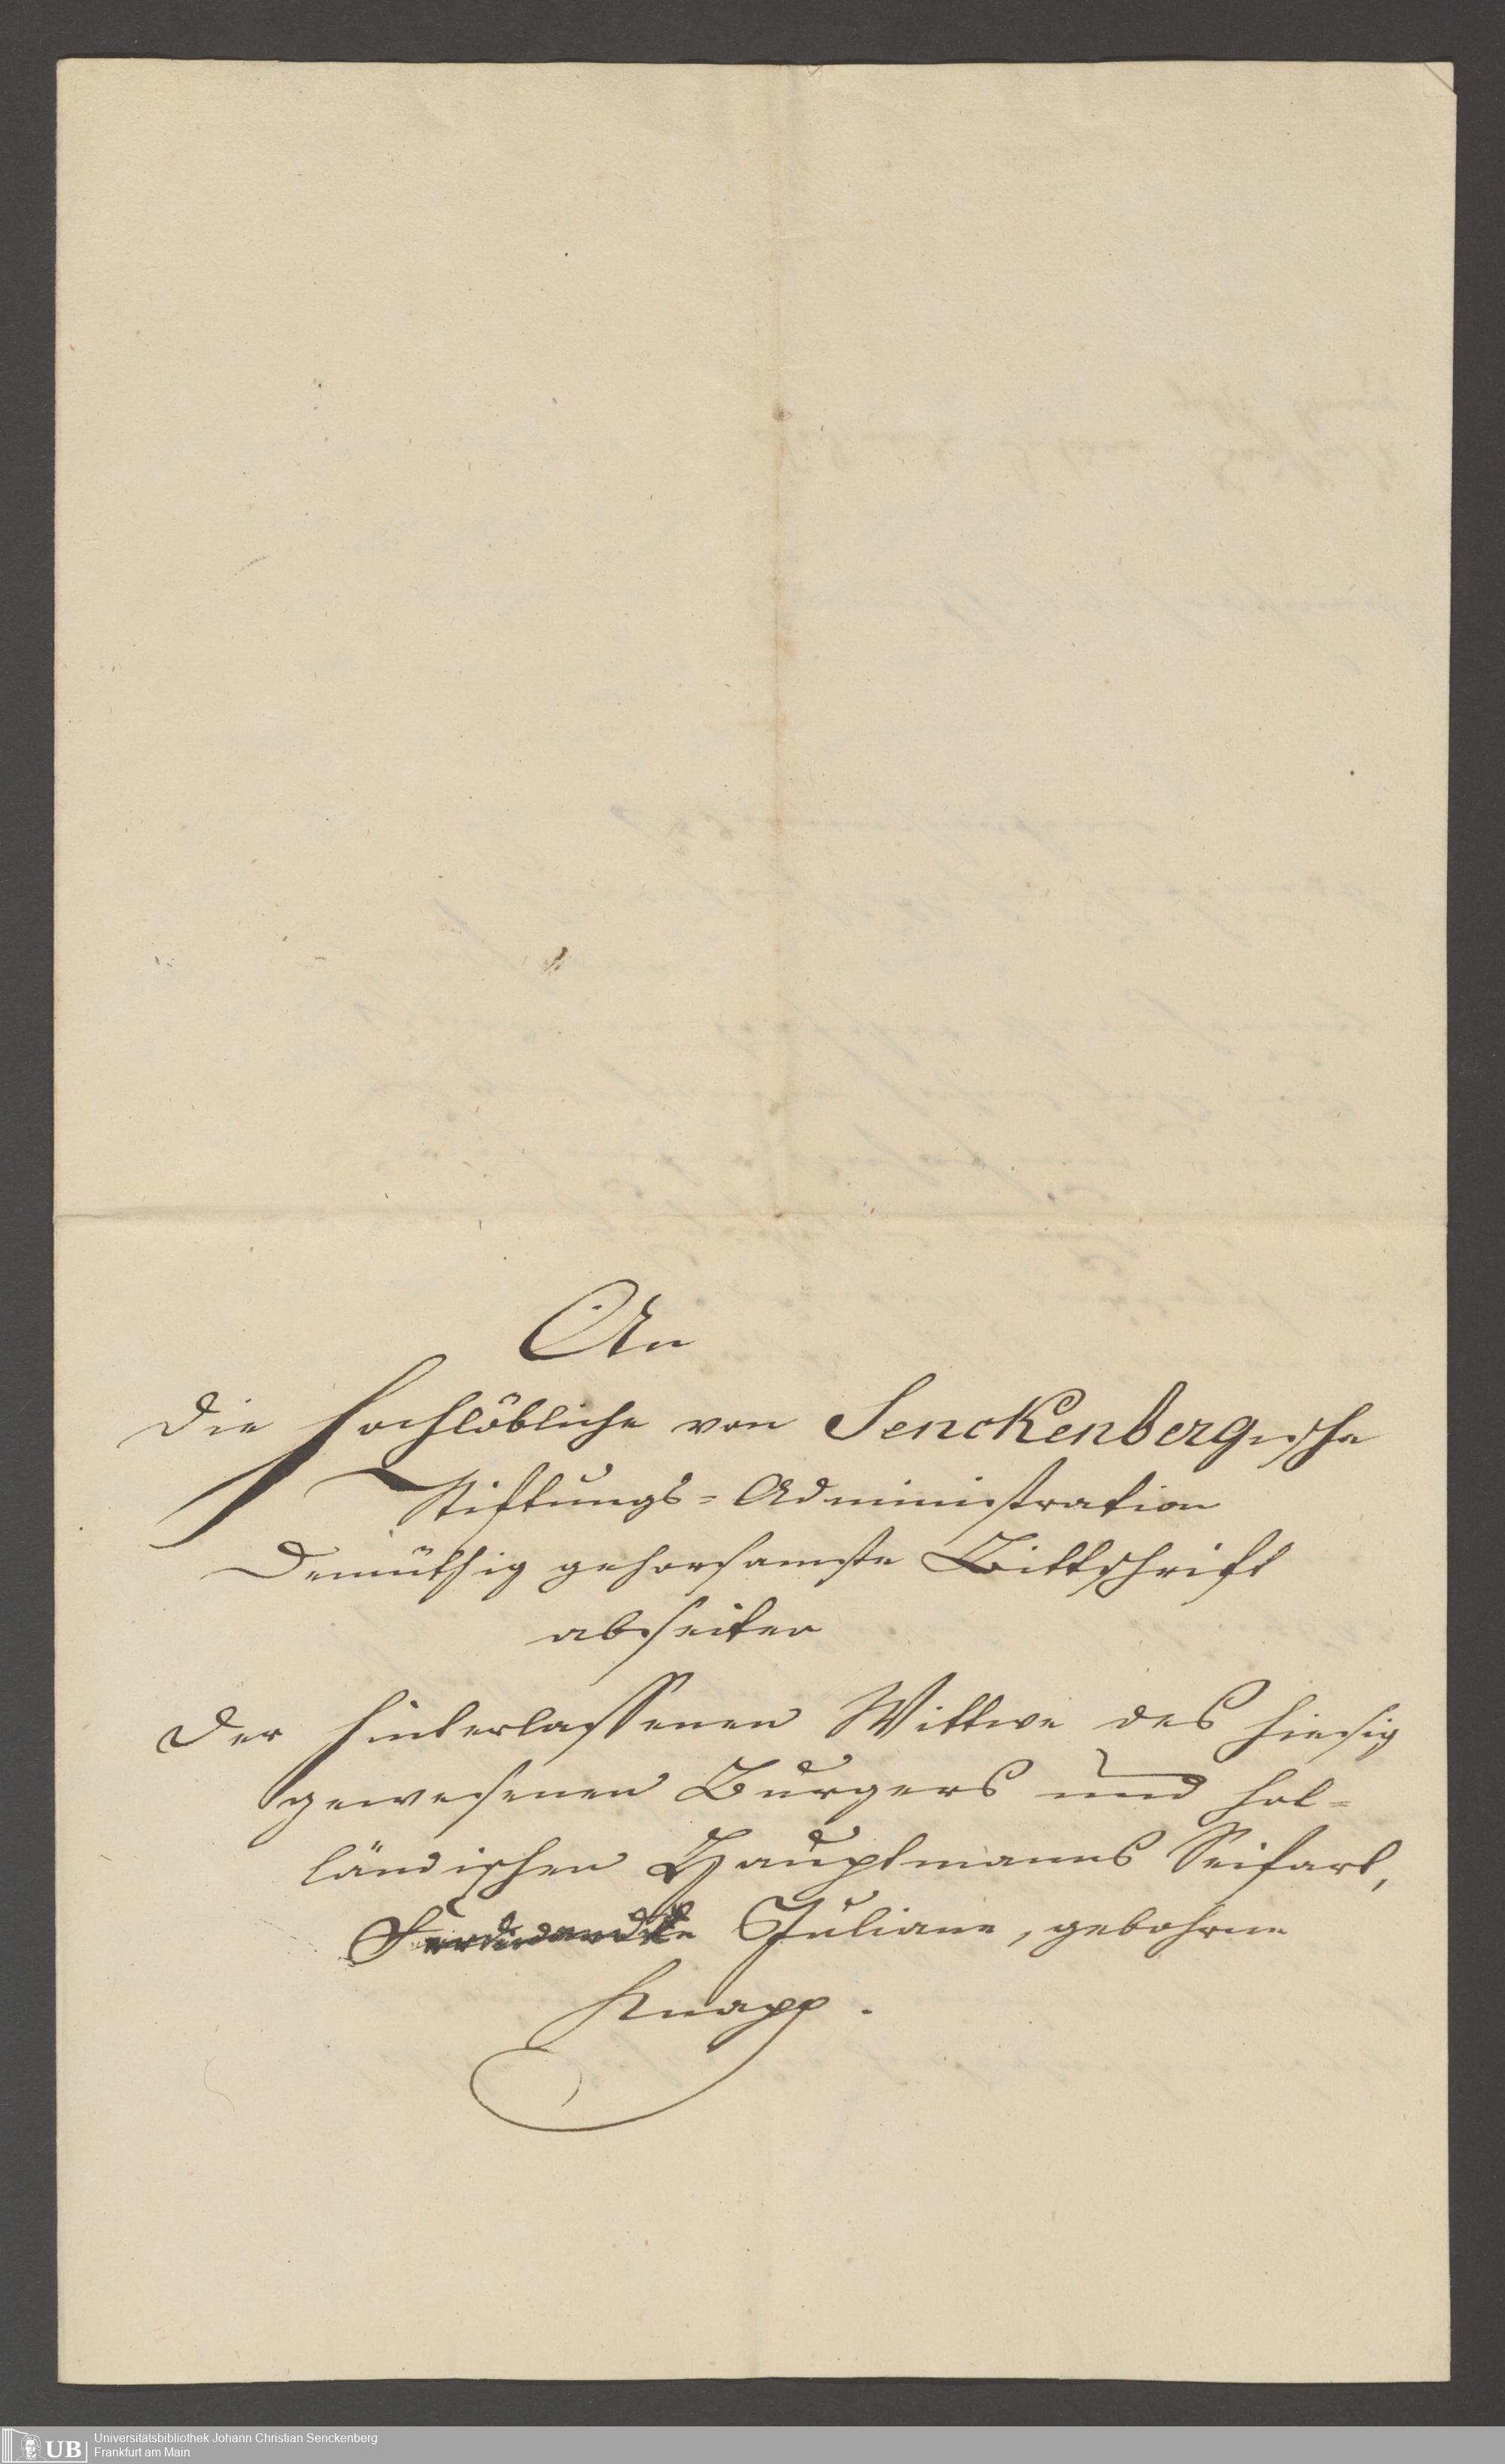 An
die hochlöbliche von Senckenbergische
Stiftungs-Administration
demüthig gehorsamste Bittschrift
abseiten
der hinterlassenen Wittwe des hiesig
gewesenen Burgers und hol-
ländischen Hauptmanns Seifart,
Juliane, gebohrne
Knapp.
UB
Universitätsbibliothek Johann Christian Senckenberg
Frankfurt am Main